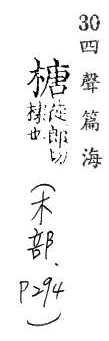 30 四聲篇海
榶
徒郎切
棣也
（木部、
P294）